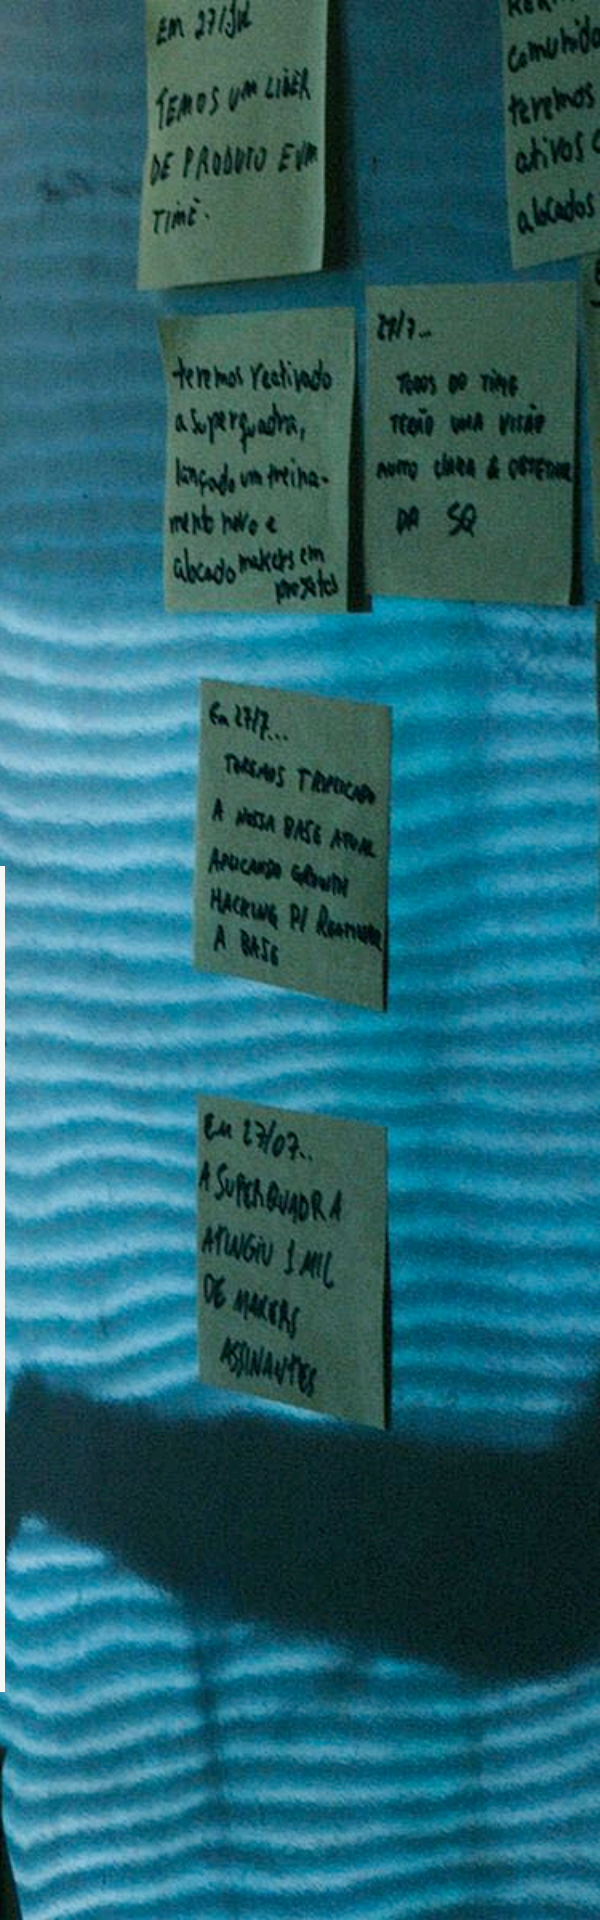 Em 27/Jul
TEMOS UM LIDER
DE PRODUTO E UM
TIME.
comunida
teremos
ativos
alocados
teremos realizado
a superquadra,
lançado um treina-
mento novo e
alocado makers em
projetos
27/7...
TODOS DO TIME
TERÃO UMA VISÃO
MUITO CLARA &
DA SQ
Em 27/7...
TEREMOS TRIPLICADO
A NOSSA BASE ATUAL
APLICANDO GROWTH
HACKING P/
A BASE
Em 27/07..
A SUPERQUADRA
ATINGIU 1 MIL
DE MAKERS
ASSINANTES